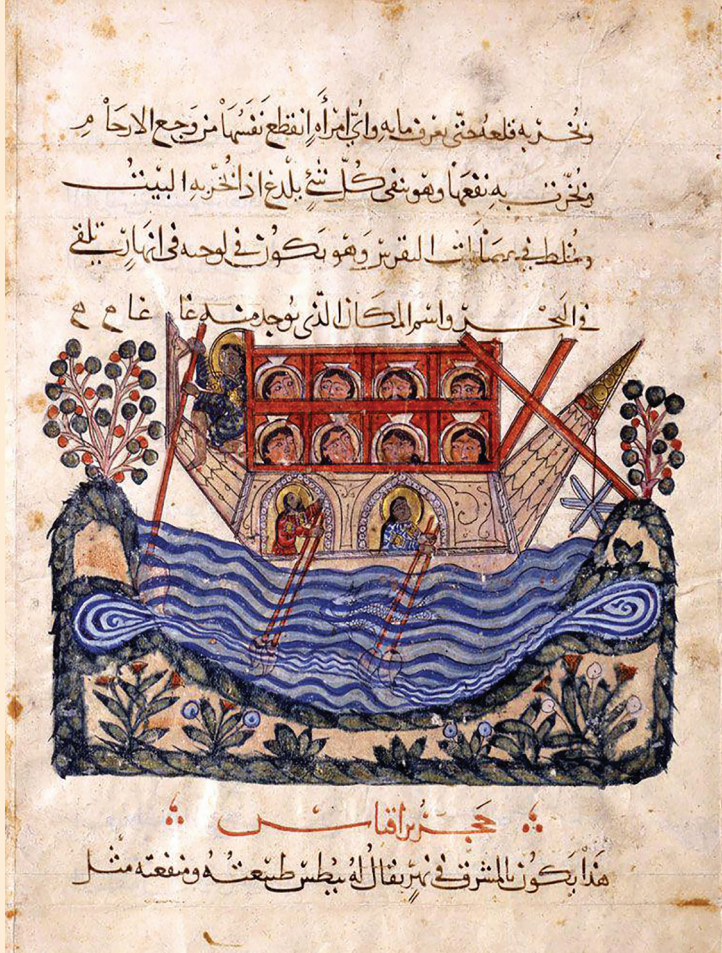 به حتّى يعرف مابه وايّ امرأهٍ انقطع نَفَسُهَا من وَجع الارحَام
به نفعها وهو ينفى كُلّ شئ يلدغ اذا بُخّر به البيت
ويُخلط في ضمادات النقرس وَهو يَكون في في انهار تلقى
في البَحر واسم المكان الّذي يوجد منه غا غا م م
حَجَر
هَذا يَكُون بالمشرق في نهرٍ يقالُ لهُ طبيعتهُ ومنفعته مثل